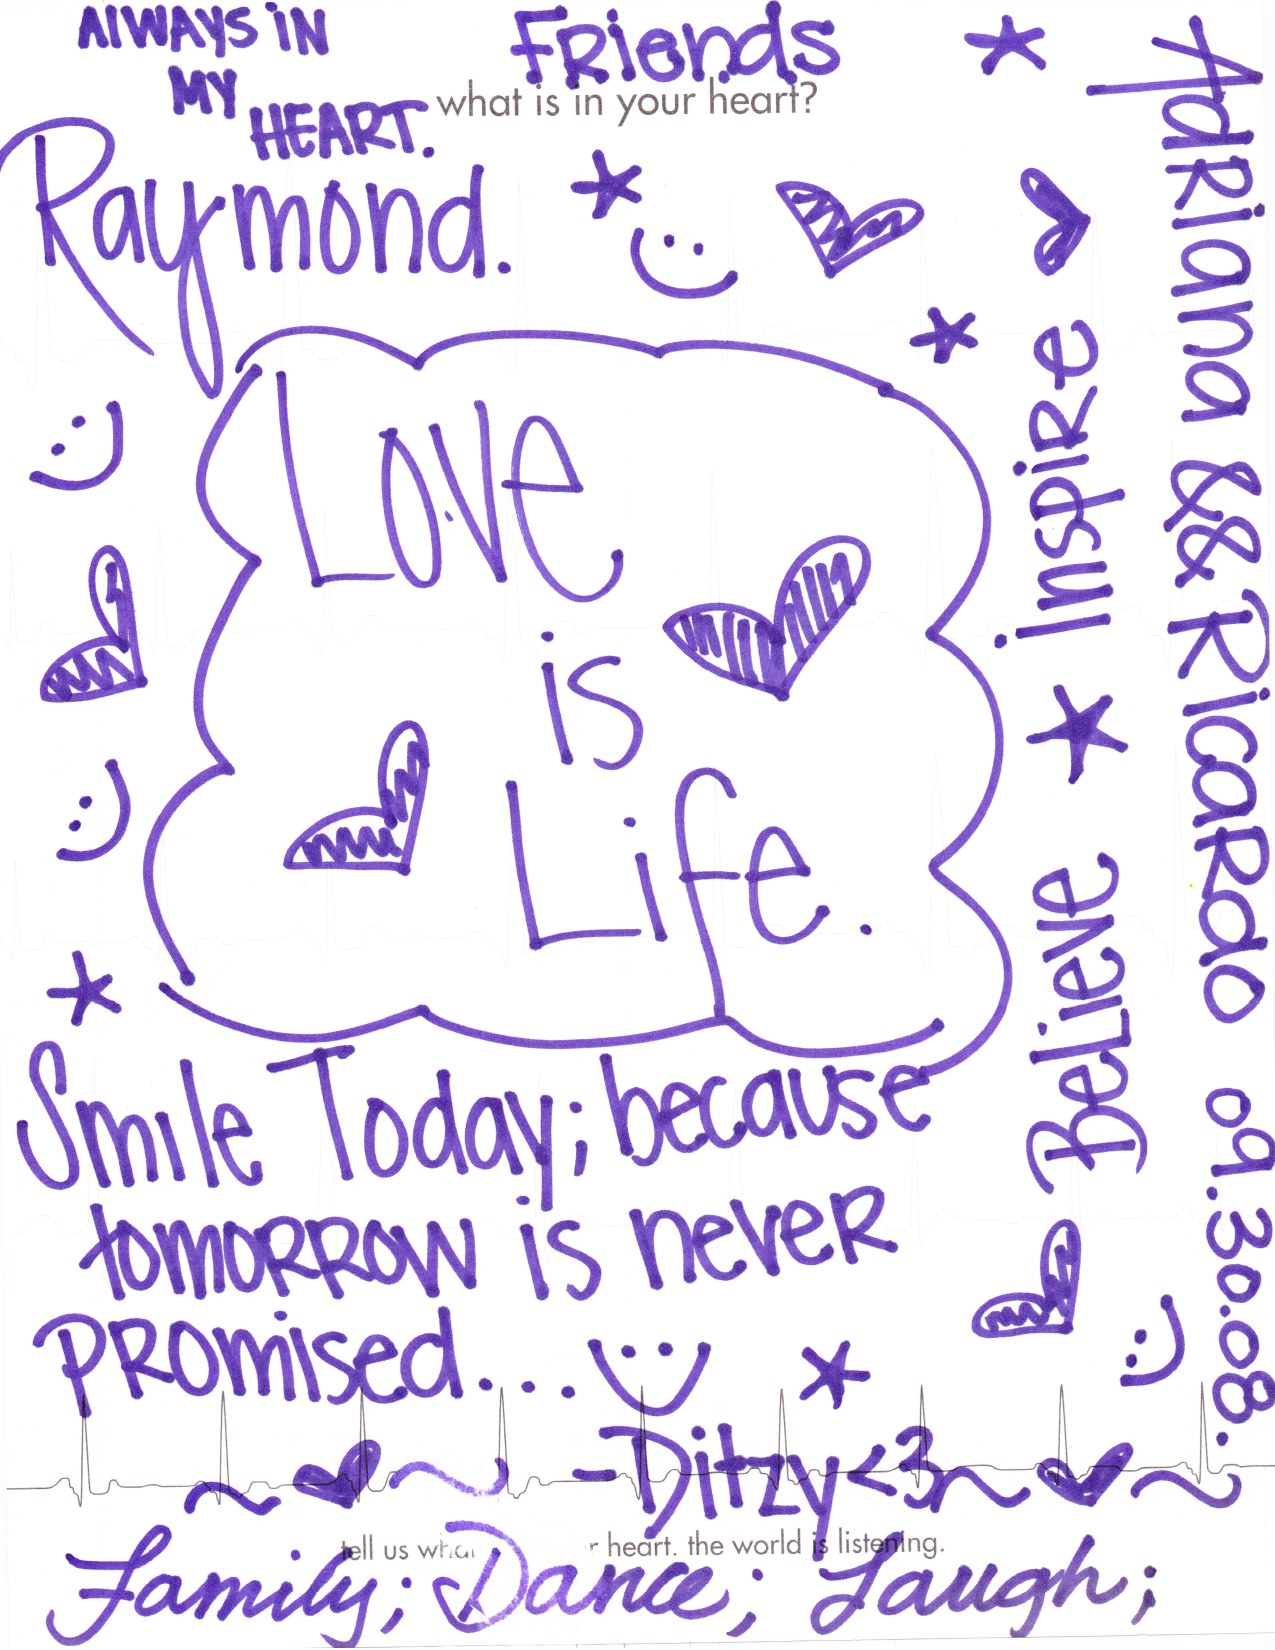 AlWAYS iN
MY
HEART.
FRiends
what is in your heart?
Raymond.
Love
is
Life.
Smile Today; because
tomoRRoW is neveR
PRomised...
-Ditzy<3
tell us what r heart. the world is listening.
Family; Dance; Laugh;
InspiRe
Believe
AdRiana && RicaRdo 09.30.08.